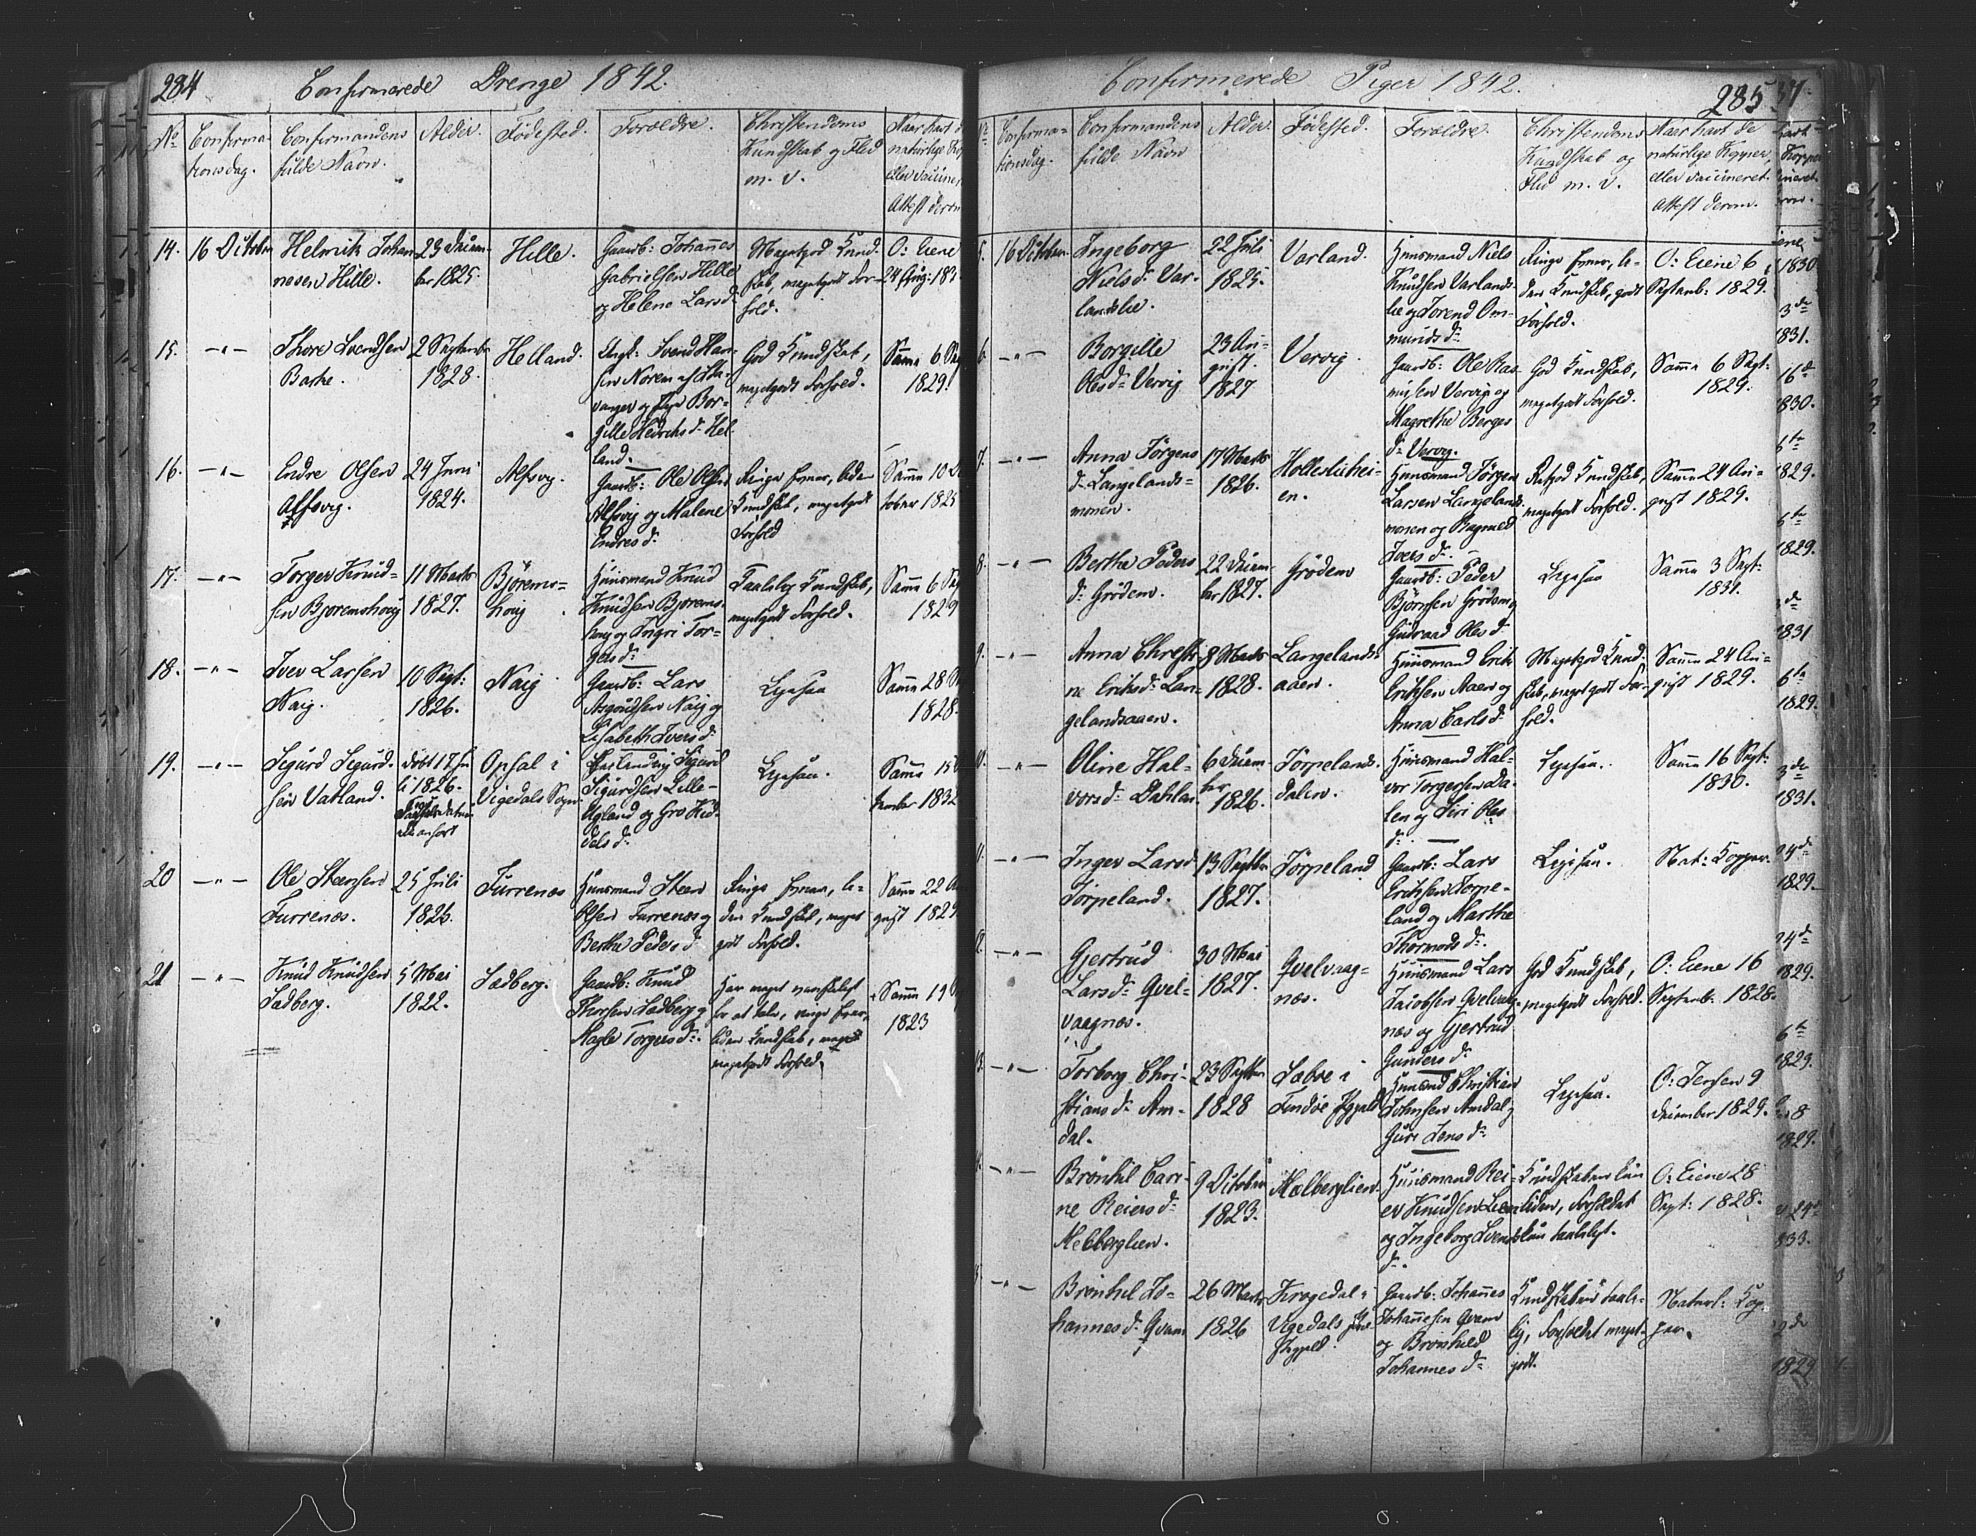 284
Confirmerede Drenge 1842.
No
Confirma-
tionsdag.
Confirmandens
fulde Navn.
Alder.
Fødested.
Forældre.
Christendoms
Kundskab og Flid
m. v.
Naar havt d
naturlige Kop
eller vaccine,
Attest derom
14.
16 October
Helmik Johan
nesen Hille.
23 Decem-
ber 1825.
Hille.
Gaardb: Johannes
Gabrielsen Hille
og Helene Larsd
Megetgod Kund-
skab, megetgodt For-
hold.
O: Eiene
28 Aug: 183
15.
—"—
Thore Svendsen
2 Septembr
1828.
Helland.
Svend Han-
sen Norem af Sta-
vanger og Pige Bor-
gille Hedriks d. Hel-
land.
God Kundskab,
megetgodt Forhold.
Samme 6 Sep
1829.
16.
—"—
Endre Olsen
Alfsvig.
24 Juni
1824.
Alfsvg.
Gaardb: Ole Olsen
Alfsvig og Malene
Endres d.
Ringe Evner, liden
Kundskab, megetgodt
Forhold
Samme 10 Oc
tober 1825
17.
—"—
Torger Knud-
sen Bjoremshoug
11 Marts
1827.
Bjørems-
houg
Huusmand Knud
Knudsen Bjorems-
houg og Ingri Tor-
gers d.
Taalelig Kundskab,
megetgodt Forhold.
Samme 6 Sep
1829
18.
—"—
Iver Larsen
Naig.
10 Sept:
1826.
Naig
Gaardb: Lars
Asgoudsen Naig og
Lisabeth Ivers d.
Ligesaa
Samme 28 S
1828.
19.
—"—
Sigurd Sigurd-
sen Vatland.
døbt 17 Ju
li 1826.
Opsal i
Vigedals Sogn
Sigurd
Sigurdsen Lille-
Ugland og Gro Kid-
dels d.
Ligesaa.
Samme 15
tember 1832
20
—"—
Ole Steensen
Furrenæs.
25 Juli
1826
Furrenæs
Huusmand Steen
Olsen Furrenæs og
Berthe Peders d.
Ringe Evner, li-
den Kundskab, meget
godt Forhold.
Samme 22 A
gust 1829
21
—"—
Knud Knudsen
Sadberg.
5 Mai
1822.
Sadberg.
Gaardb: Knud
Thorsen Sadberg og
Magle Torgers d.
Har meget vanskeligt
for at tale, ringe Evner
liden Kundskab,
megetgodt Forhold.
Samme 19
1823
Confirmerede Piger 1842.
285
No
Confirma-
tionsdag.
Confirmandens
fulde Navn
Alder.
Fødested.
Forældre.
Christendoms
Kundskab og
Flid m. v.
Naar havt de
naturlige Kopper,
eller vaccineret.
Attest derom.
5.
16 October
Ingeborg
Niels d. Var-
landslie.
22 Juli
1825.
Varland.
Huusmand Niels
Knudsen Varlands-
lie og Torend Om-
munds d.
Ringe Evner, li-
den Kundskab, godt
Forhold.
O: Eiene 6
Septemb: 1829.
6.
—"—
Borgille
Olsd. Vervig
23 Au-
gust.
1827
Vervig.
Gaardb: Ole Ras-
musen Vervig og
Magrethe Berges
d. Vervig.
God Kundskab,
megetgodt Forhold.
Samme 6 Sept:
1829.
7.
—"—
Anna Jørgens
d. Langelands-
monen.
17 Marts
1826.
Hollesliehei-
en.
Huusmand Jørgen
Larsen Langelands-
monen og Ragnild
Ivers d.
Retgod Kundskab,
megetgodt Forhold.
Samme 24 Au-
gust 1829.
8.
—"—
Berthe Peders
d. Grødem.
22 Decem-
ber 1827.
Grødem
Gaardb: Peder
Bjørnsen Grødem og
Gudraad Oles d.
Ligesaa
Samme 3 Sept:
1831.
9.
—"—
Anna Christi-
ne Eriksd. Lan-
gelandsaaen.
8 Marts
1828.
Langelands-
aaen.
Huusmand Erik
Eriksen Aaen og
Anna Carls d.
Megetgod Kund-
skab, megetgodt For-
hold.
Samme 24 Au-
gust 1829.
10.
—"—
Oline Hal-
vorsd. Dahlen
6 Decem-
ber
1826.
Tørpelands-
dalen.
Huusmand Hal-
vor Torgersen Da-
len og Siri Oles
d.
Ligesaa.
Samme 16 Sept:
1830.
11.
—"—
Inger Larsd.
Tørpeland.
13 Septbr
1827.
Tørpeland
Gaardb: Lars
Eriksen Tørpe-
land og Marthe
Thormods d.
Ligesaa.
Nat: Kopper
12.
—"—
Gjertrud
Lars d. Qvel-
vaagnæs.
30 Mai
1827.
Qvelvaag-
næs.
Huusmand Lars
Jacobsen Qvelvaag-
næs og Gjertrud
Gunders d.
God Kundskab,
megetgodt Forhold.
O: Eiene 16
Septemb: 1828.
13.
—"—
Torborg Chri-
stians d. Am-
dal.
23 Septbr
1828
Sabøe i
Findøe Pgjeld
Huusmd Christian
Johnsen Amdal og
Guri Jens d.
Ligesaa.
O: Jersen 9
december 1829.
—"—
Brønhil Cari-
ne Reiers d.
Melberglien.
9 October
1823.
Mælberglien.
Huusmand Rei-
er Knudsen Lien
og Ingeborg Svends
d.
Kundskaben kun
liden, Forholdet
kun taaleligt.
O: Eiene 28
Sept: 1828.
—"—
Brønhil Jo-
hannes d. Qvam
26 Marts
1826
Krogedal i
Vigedals
Pgjeld
Gaardb: Johannes
Johannesen Qvam
og Brønhild
Johannes d.
Kundskaben taale-
lig, Forholdet meget-
godt.
Naturl: Kop-
per.